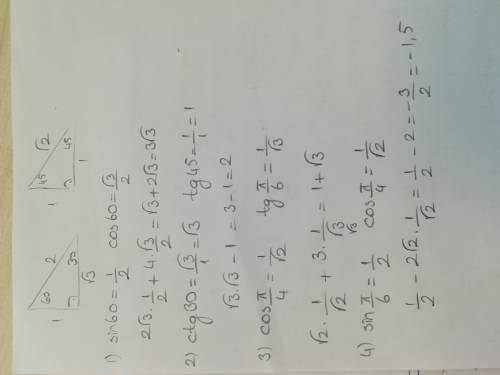 1 60 2 30 √3
1 45 √2 45 1
1) sin60 = 1/2 cos60 = √3/2
2√3 · 1/2 + 4 · √3/2 = √3 + 2√3 = 3√3
2) ctg30 = √3/1 = √3 tg45 = 1/1 = 1
√3 · √3 - 1 = 3 - 1 = 2
3) cos π/4 = 1/√2 tg π/6 = 1/√3
√2 · 1/√2 + 3 · 1/√3 = 1 + √3
√3
4) sin π/6 = 1/2 cos π/4 = 1/√2
1/2 - 2√2 · 1/√2 = 1/2 - 2 = -3/2 = -1,5